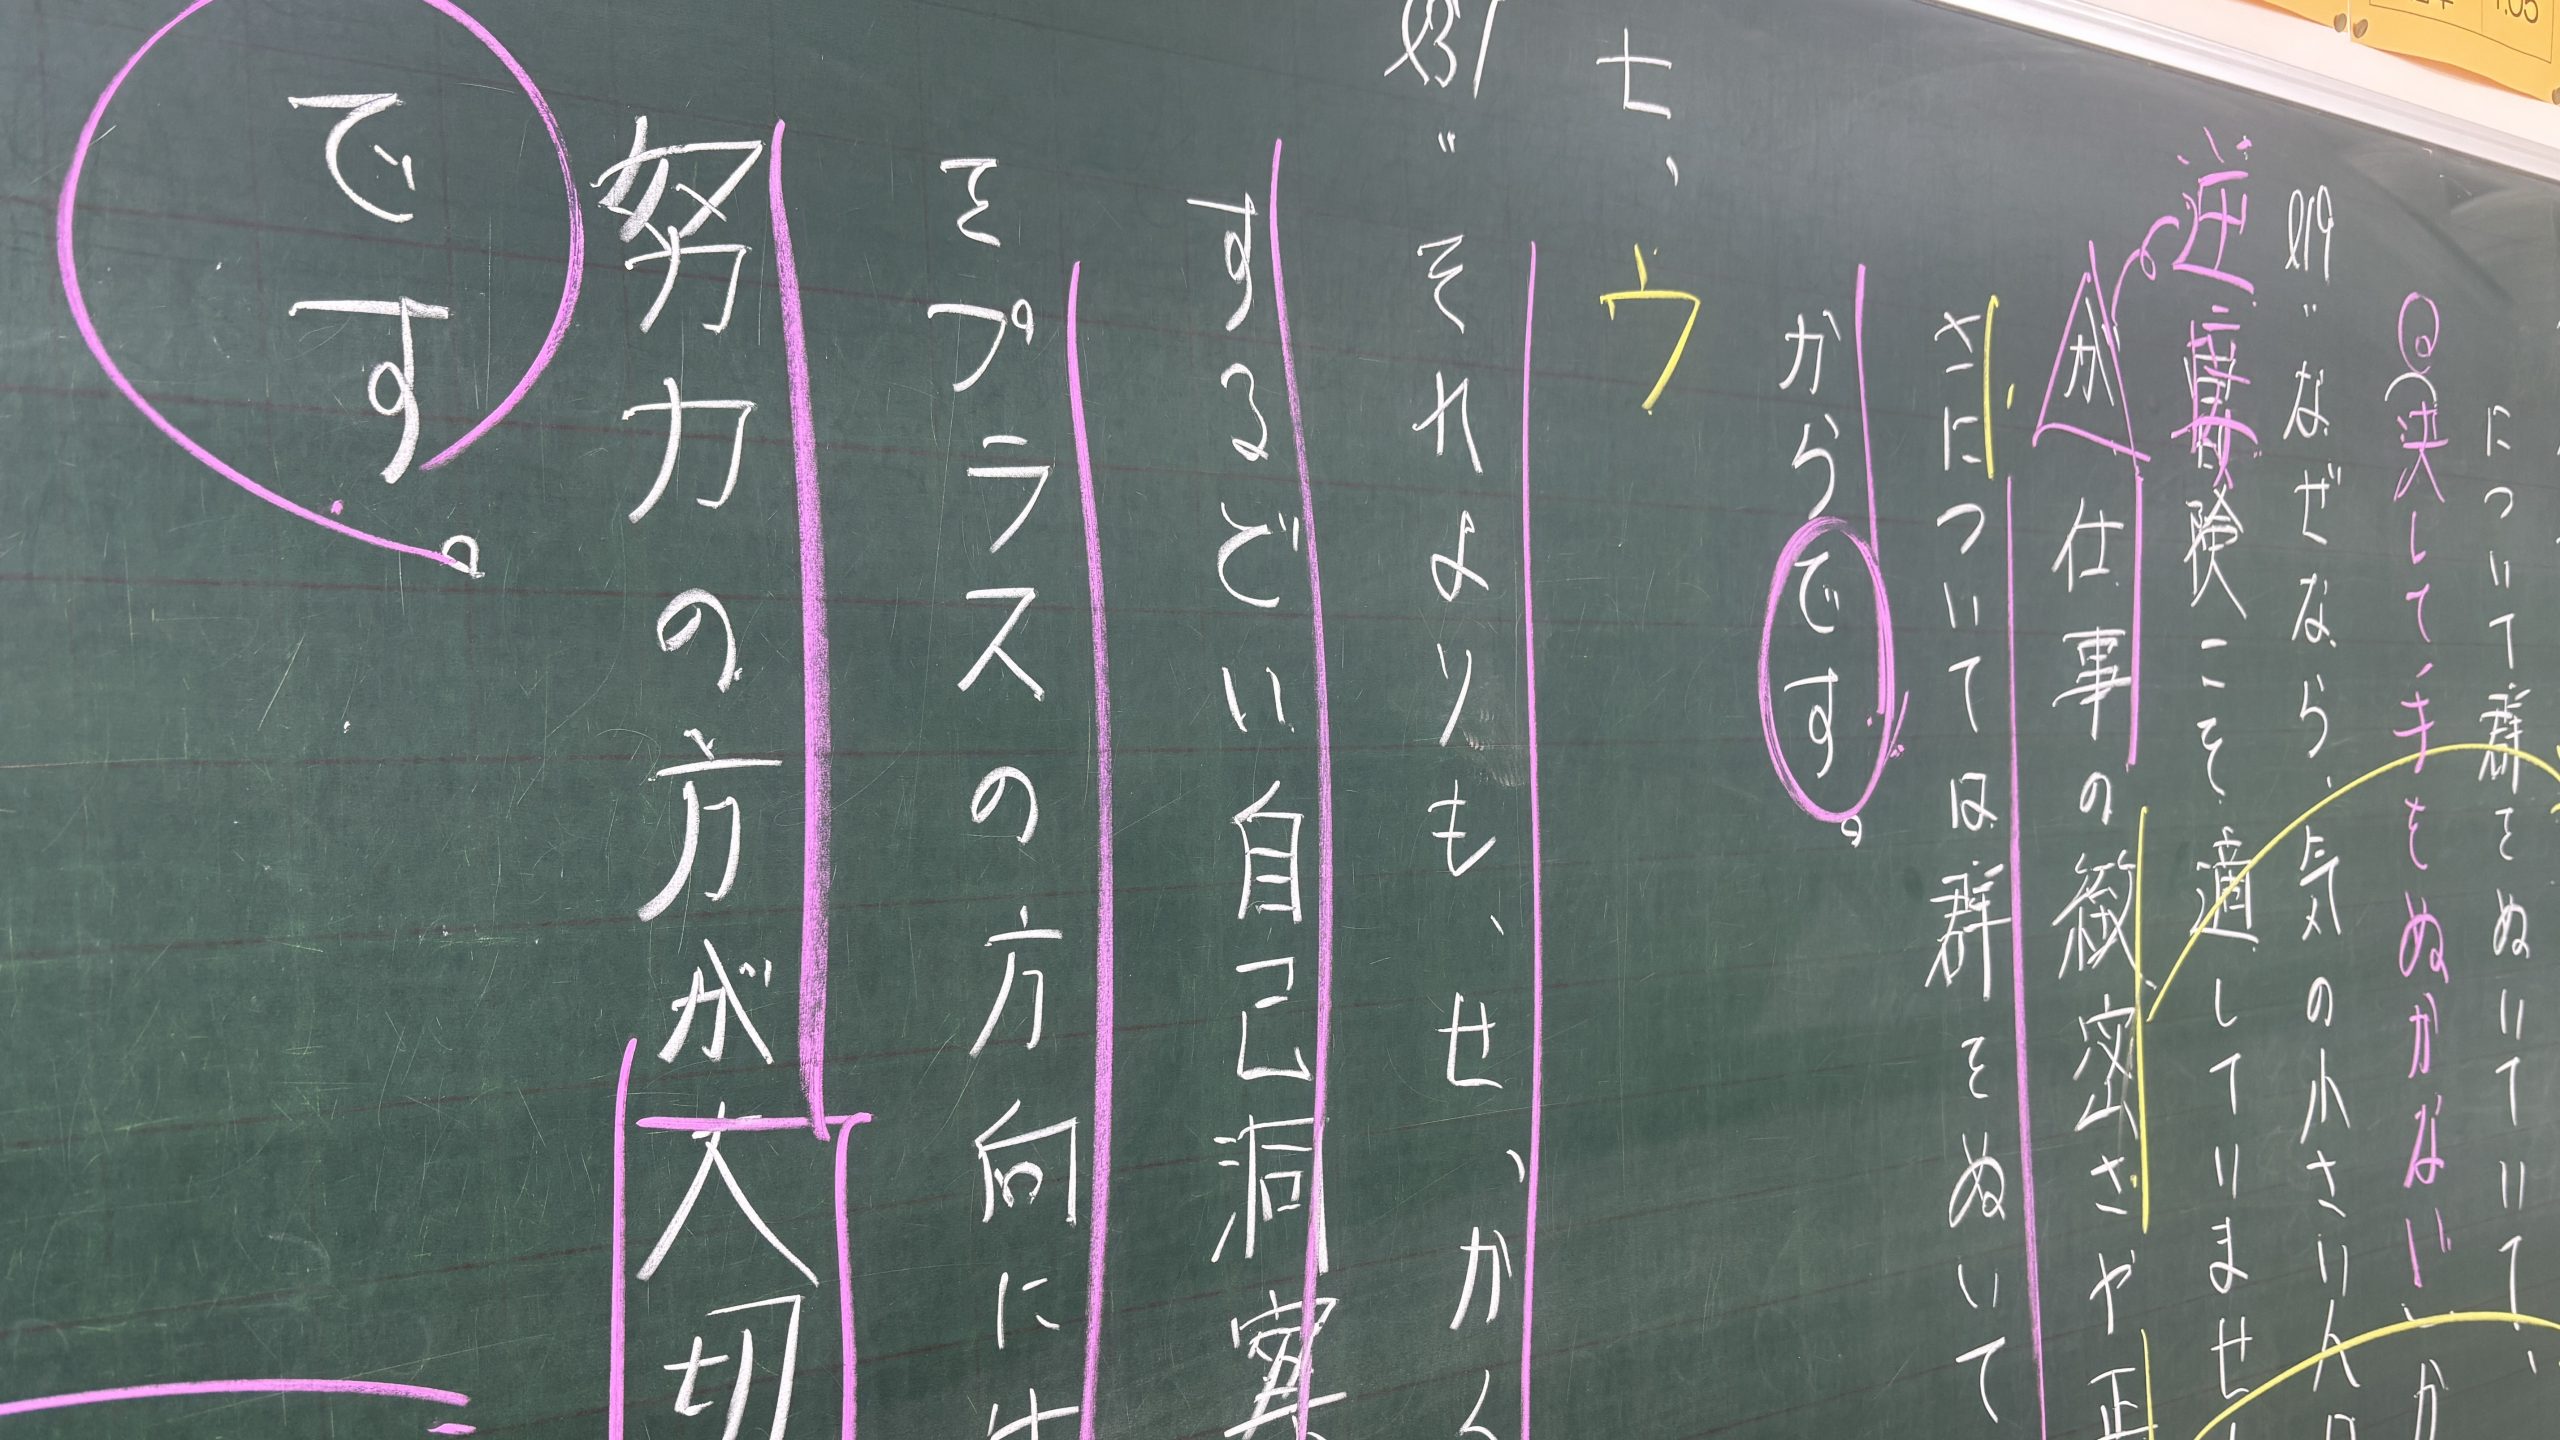 について群をぬいていて、
決して手をぬかない
ℓ19〃なぜなら、気の小さい人
逆
冒険こそ適していませ
が仕事の緻密さや正
さについては群をぬいて
からです。
七、ウ
ℓ31〃それよりも、せっかく
するどい自己洞察
をプラスの方向に
努力の方が大切
です。